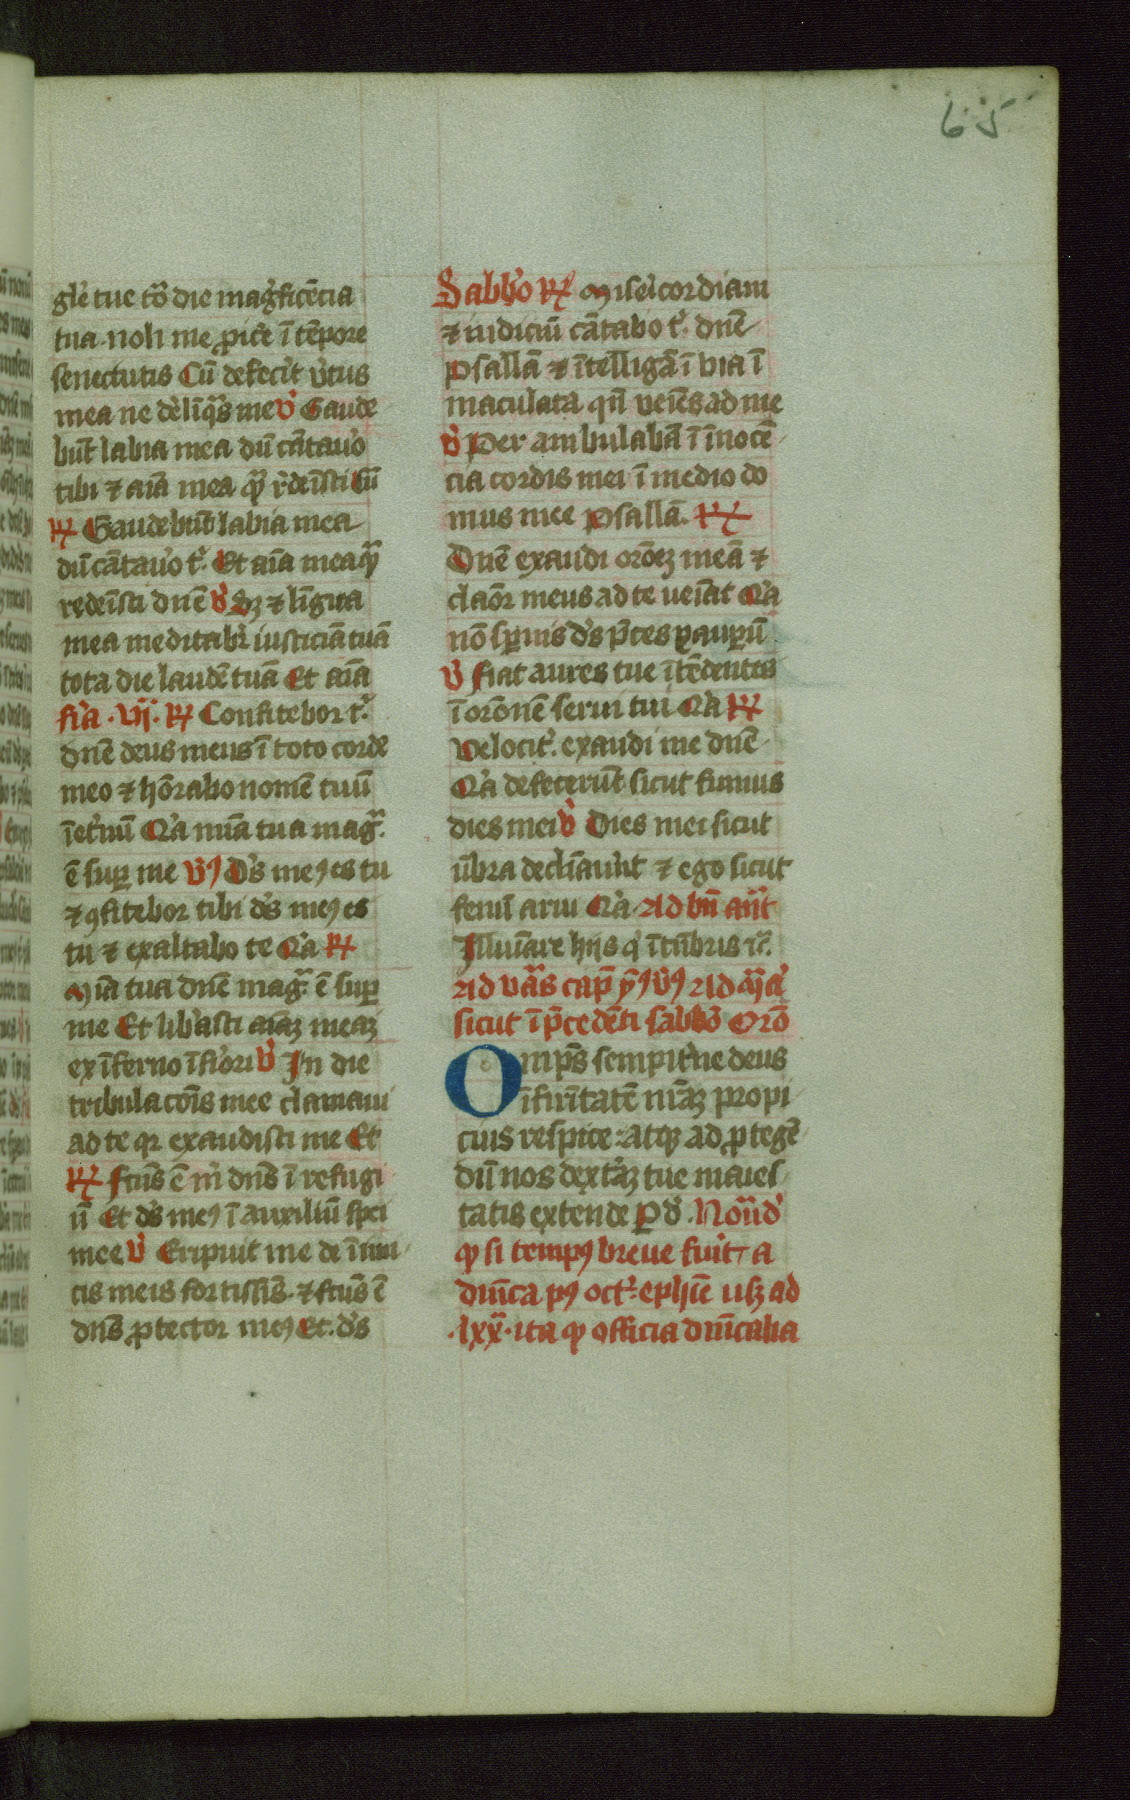 65
glē tue tō die mag̉ficēcia
tua. noli me ꝓicē ī tēpore
senectutis Cū defec̉it v̉tus
mea ne dēlīq̄s me V̉ Gaude
būt labia mea dū cātauo̓
tibi ⁊ aīa mea qͣ̄ r̓deīsti Cū
R̷ Gaudebūt labia mea
dū cātauo̓ t̓. Et aīa mea qͣ̄
redeīsti dnē V̉ Sꝫ ⁊ līgua
mea meditabr̓ iusticiā tuā
tota die laudē tuā Et aīa
fr̓ia .vij. R̷ Confitebor t̓.
dnē deus meus ī toto corde
meo ⁊ hōrabo nomē tuū
īet̓nū Qr̓a mīa tua magͣ.
ē suꝑ me V̉ꝰ Ds̄ meꝰ es tu
⁊ ꝯfitebor tibi ds̄ meꝰ es
tu ⁊ exaltabo te Qr̓a R̷
Mīa tua dnē magͣ. ē suꝑ
me Et lib̓asti aīaꝫ meaꝫ
ex īferno īfio̓ri V̉ In die
tribulacōīs mee clamaui
ad te qr̓ exaudisti me Et
R̷ Fcūs ē m̓ dnś ī refugi
ū Et ds̄ meꝰ ī auxiliū spei
mee V̉ Eripuit me de īimi
cis meis fortissīs. ⁊ fcūs ē
dnś ꝓtector meꝰ Et. ds̄
Sabb̓o R̷ Misẻicordiam
⁊ iudiciū cātabo t̓. dnē
Psallā ⁊ ītelligā ī via ī
maculata qn̄ veīes ad me
V̉ Per ambulabā ī īnocē
cia cordis mei ī medio do
mus mee Psallā. R̷
Dnē exaudi orōeꝫ meā ⁊
clāor meus ad te ueīat Qr̓a
nō sꝑnis ds̄ p̄ces pauꝑū
V̉ Fiat aures tue ītēdentes
ī orōnē serui tui Qr̓a R̷
Velocit̓. exaudi me dnē
Qr̓a defecerūt sicut fumus
dies mei V̉ Dies mei sicut
ūbra declīau̓nt ⁊ ego sicut
fenū arui Qr̓a Ad bn̄ ant̄
Illuīare hijs q̓ ī tn̄bris ꝛc̄.
Ad vās cap̄ ym̄ꝰ V̉ꝰ Ad mͣ̄ ā
sicut ī p̄cedēti sabb̓o Orō
Omps̄ sempit̓ne deus
īfirītatē nr̄aꝫ propi
cius respice: atqꝫ ad ꝓtegē
dū nos dext̓aꝫ tue maies
tatis extende P d̓. Notād̓
qͣ̄ si tempꝰ breue fuit̓ a
dnīca pꝰ octͣ. ephīe usꝫ ad
.lxxͣ. ita qͣ̄ officia dnīcalia